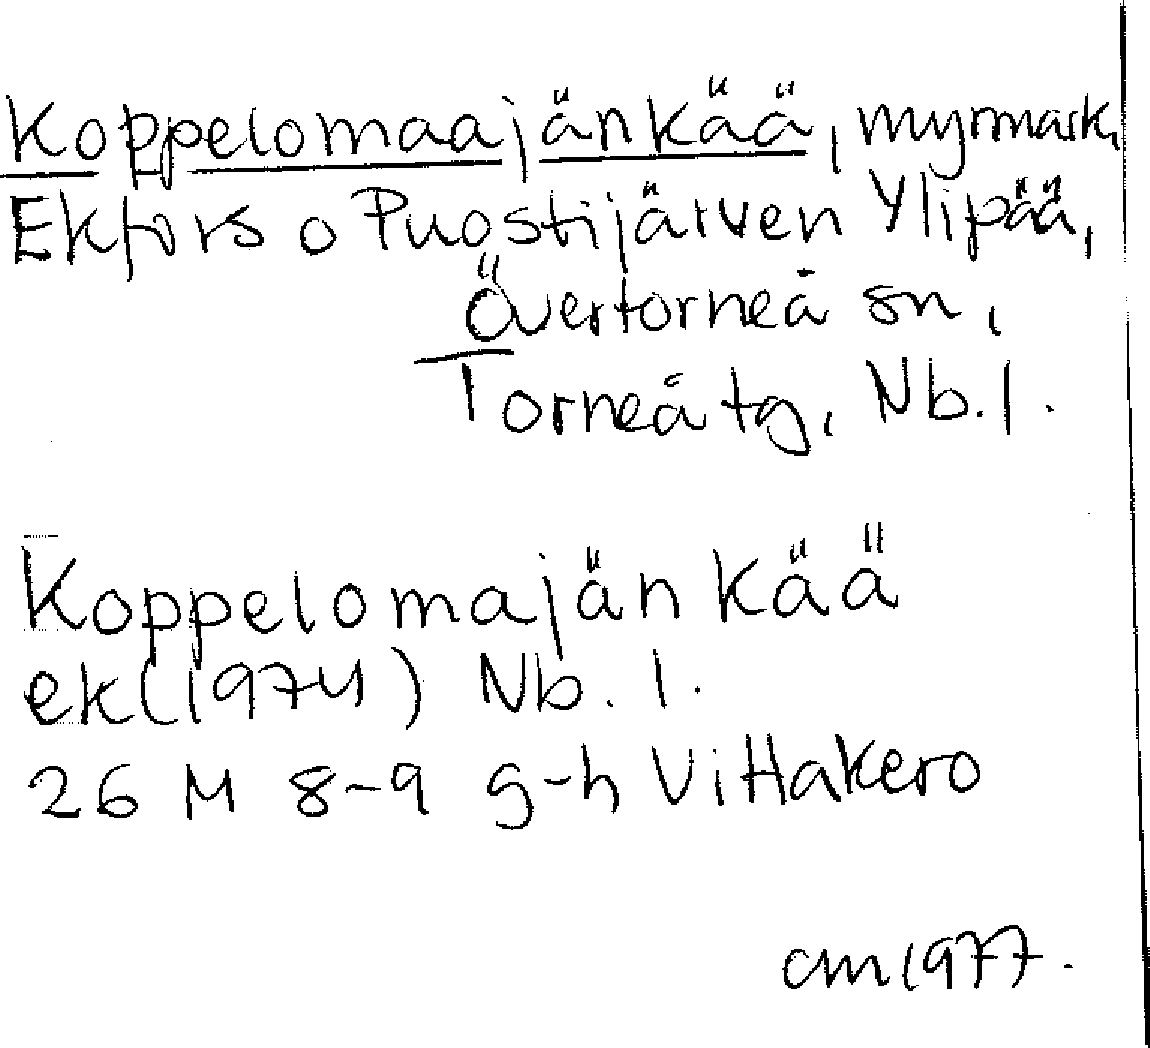 Koppelomaajänkää, myrmark,
Ekfors o Puostijärven Ylipää,
Övertorneå sn,
Torneå tg, Nb. l.
Koppelomajänkää
ek (1974) Nb. l.
26 M 8-9 g-h Vittakero
cm 1977.